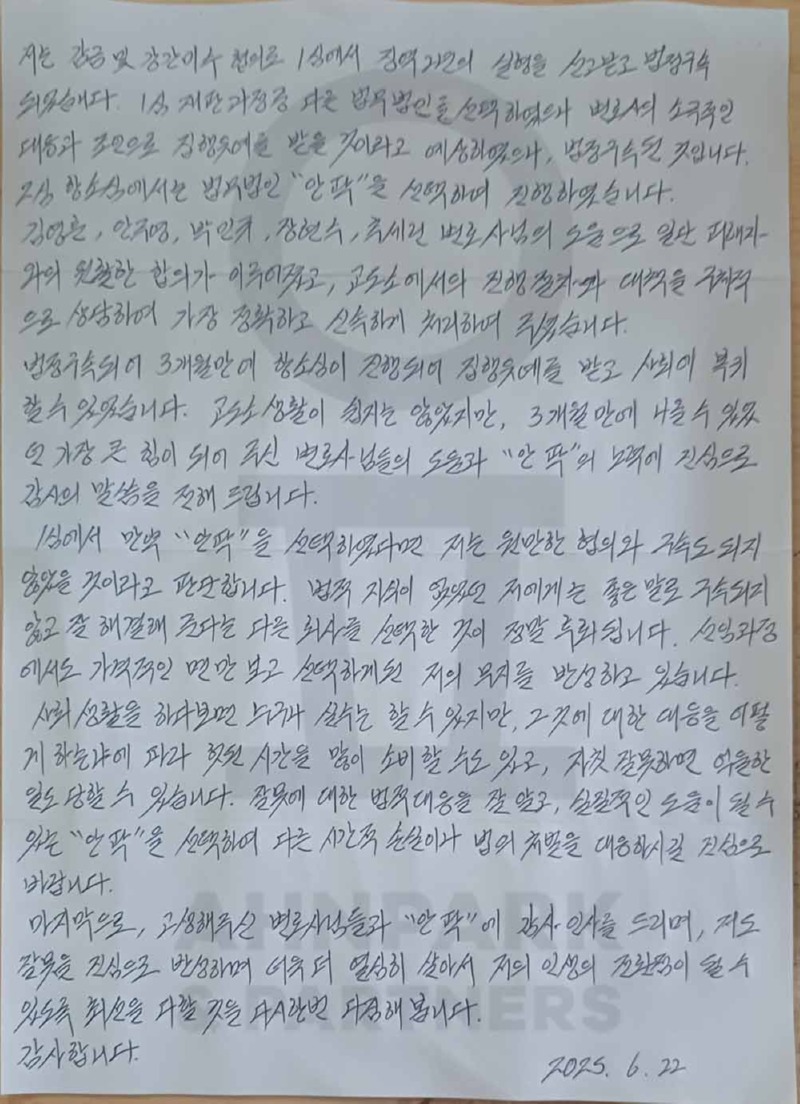 저는 감금 및 강간미수 혐의로 1심에서 징역 2년의 실형을 선고받고 법정구속
되었습니다. 1심 재판과정중 다른 법무법인을 선택하였으나 변호사의 소극적인
대응과 조언으로 집행유예를 받을 것이라고 예상하였으나, 법정구속된 것입니다.
2심 항소심에서는 법무법인 "안팍"을 선택하여 진행하였습니다.
변호사님의 도움으로 일단 피해자
와의 원활한 합의가 이루어졌고, 교도소에서의 진행절차와 대책을 구체적
으로 상담하여 가장 정확하고 신속하게 처리하여 주셨습니다.
법정구속되어 3개월만에 항소심이 진행되어 집행유예를 받고 사회에 복귀
할 수 있었습니다. 교도소 생활이 쉽지는 않았지만, 3개월만에 나올 수 있었
던 가장 큰 힘이 되어 주신 변호사님들의 도움과 "안팍"의 노력에 진심으로
감사의 말씀을 전해 드립니다.
1심에서 만약 "안팍"을 선택하였다면 저는 원만한 협의와 구속도 되지
않았을 것이라고 판단합니다. 법적 지식이 없었던 저에게는 좋은 말로 구속되지
않고 잘 해결해 준다는 다른 회사를 선택한 것이 정말 후회됩니다. 선임과정
에서도 가격적인 면만 보고 선택하게된 저의 무지를 반성하고 있습니다.
사회 생활을 하다보면 누구나 실수는 할 수 있지만, 그것에 대한 대응을 어떻
게 하는냐에 따라 헛된 시간을 많이 소비할 수도 있고, 자칫 잘못하면 억울한
일도 당할 수 있습니다. 잘못에 대한 법적대응을 잘 알고, 실질적인 도움이 될 수
있는 "안팍"을 선택하여 다른 시간적 손실이나 법의 처벌을 대응하시길 진심으로
바랍니다.
마지막으로, 고생해주신 변호사님들과 "안팍"에 감사 인사를 드리며, 저도
잘못을 진심으로 반성하며 더욱 더 열심히 살아서 저의 인생의 전환점이 될 수
있도록 최선을 다할 것을 다시한번 다짐해 봅니다.
감사합니다.
2025. 6. 22
AHNPARK
& PARTNERS